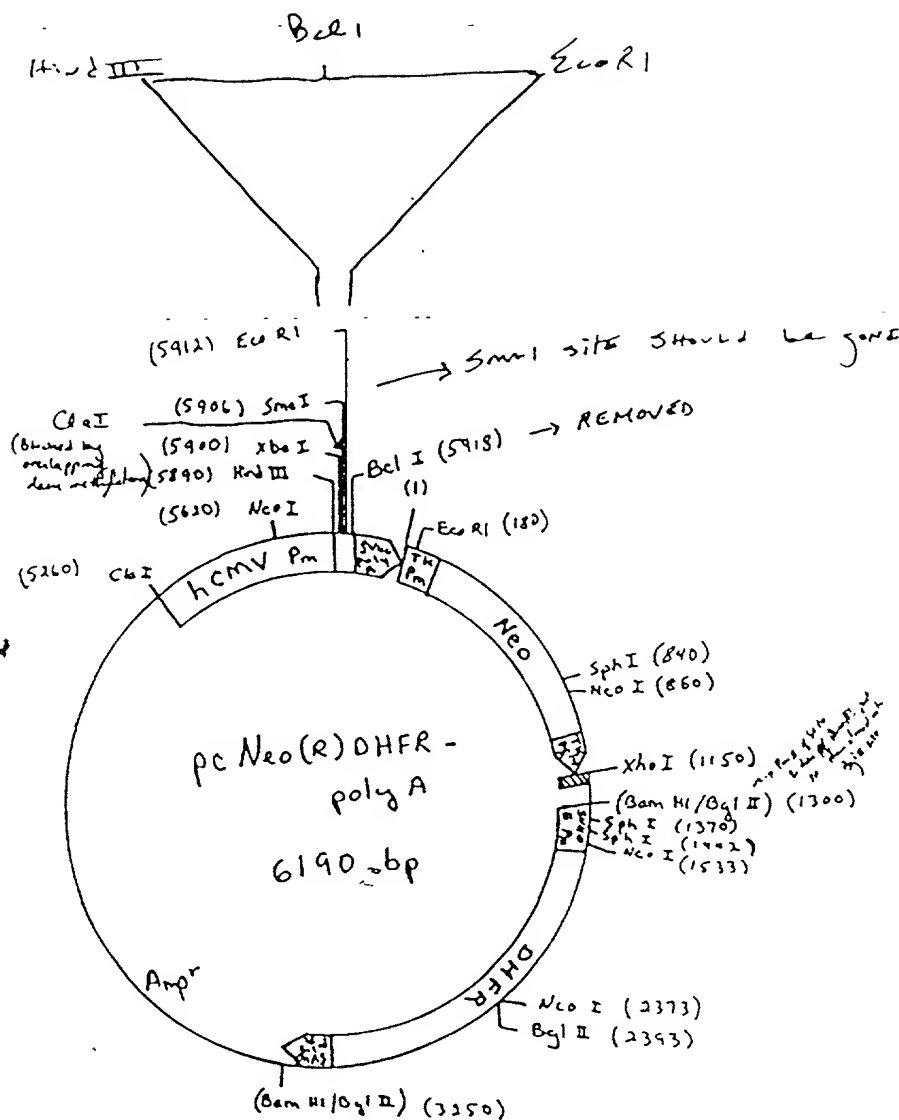 Bcl 1
Hind III
EcoR1
(5912) EcoR1
Sma1 site should be gone
(5906) SmaI
ClaI
(Blocked by
overlapping
dam methylation)
(5900) XbaI
(5890) Hind III
Bcl I (5918) → REMOVED
(5620) NcoI
(1)
EcoR1 (180)
(5260) ClaI
hcmv Pm
TK
Pm
Neo
Sph I (840)
Nco I (860)
Xho I (1150)
(Bam HI/Bgl II) (1300)
Sph I (1370)
Sph I (1442)
Nco I (1533)
pcNeo(R)DHFR-
polyA
6190 bp
DHFR
Nco I (2373)
Bgl II (2393)
Ampr
(Bam HI/Bgl II) (3250)